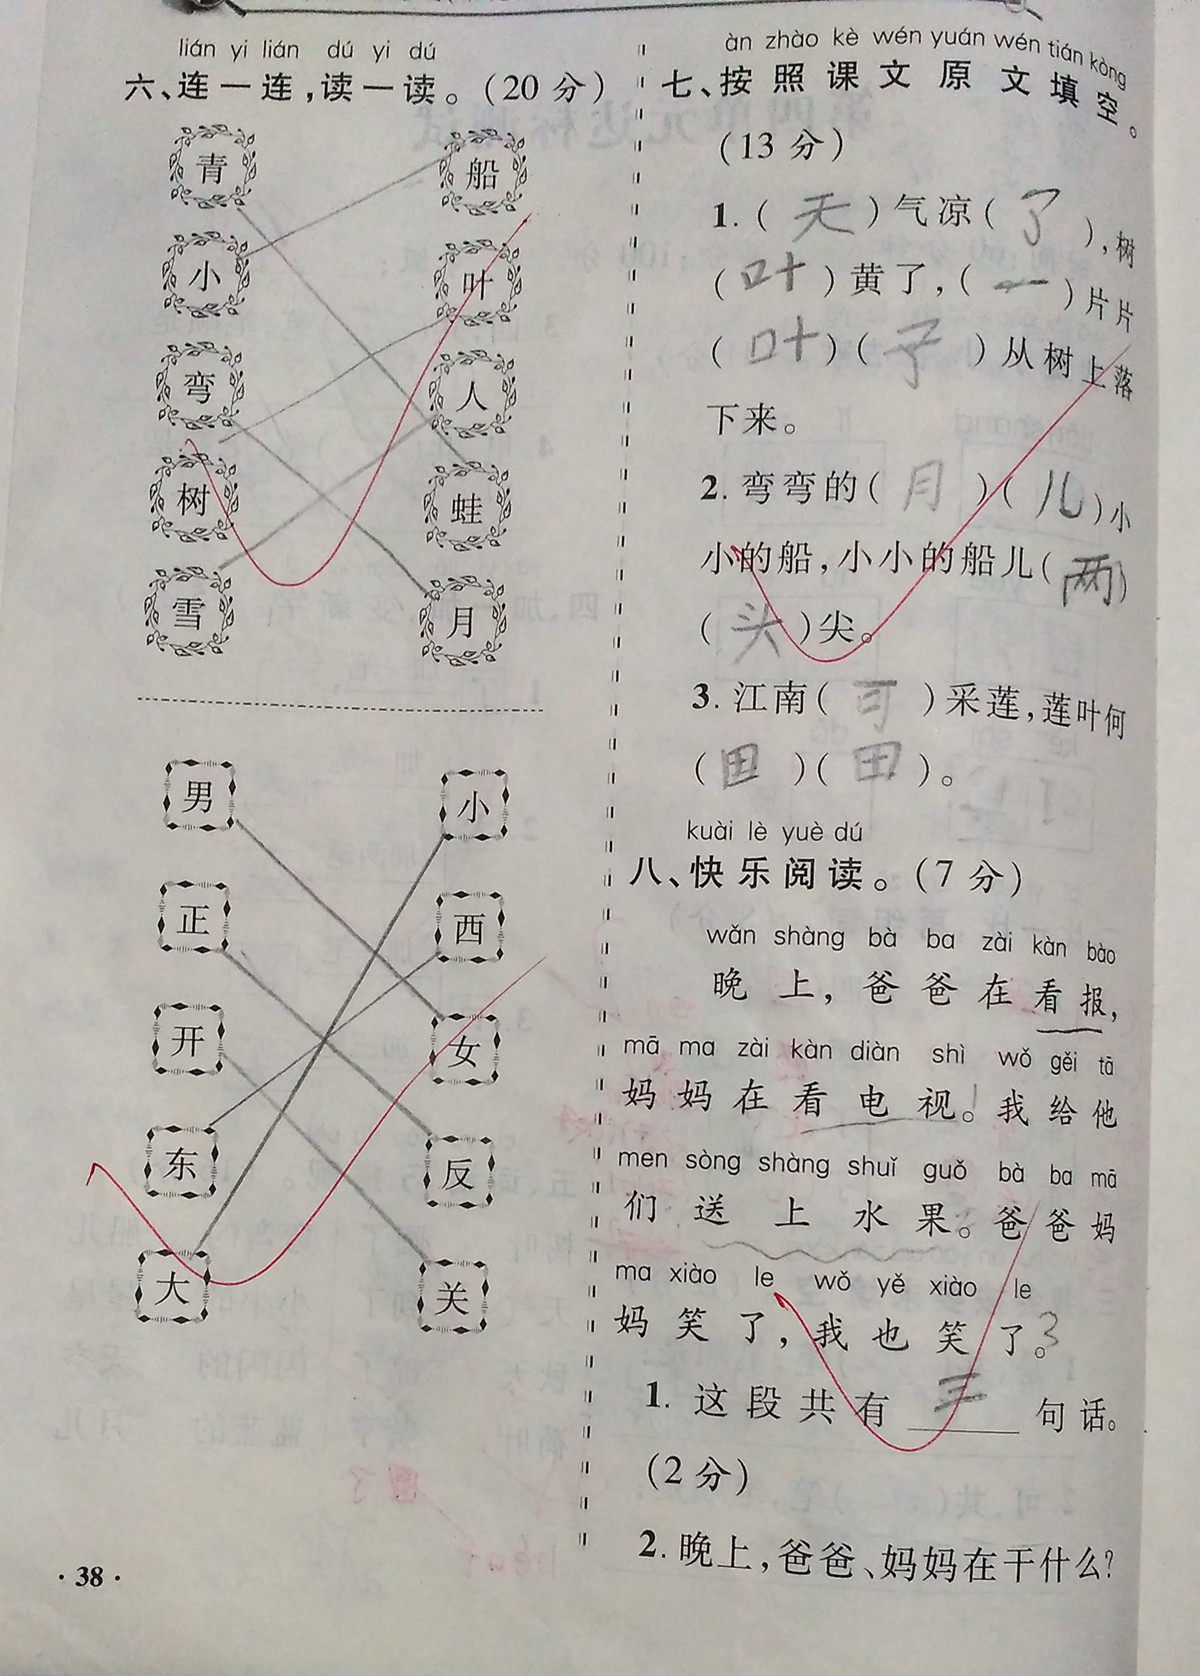 lián yi lián dú yi dú
六、连一连,读一读。(20分)
青 船
小 叶
弯 人
树 蛙
雪 月
男 小
正 西
开 女
东 反
大 关
·38·
àn zhào kè wén yuán wén tián kòng
七、按照课文原文填空。
(13分)
1.(天)气凉(了),树
(叶)黄了,(一)片片
(叶)(子)从树上落
下来。
2.弯弯的(月)(儿)小
小的船,小小的船儿(两)
(头)尖。
3.江南(可)采莲,莲叶何
(田)(田)。
kuài lè yuè dú
八、快乐阅读。(7分)
wǎn shàng bà ba zài kàn bào
晚上,爸爸在看报,
mā ma zài kàn diàn shì wǒ gěi tā
妈妈在看电视。我给他
men sòng shàng shuǐ guǒ bà ba mā
们送上水果。爸爸妈
ma xiào le wǒ yě xiào le
妈笑了,我也笑了。3
1.这段共有三句话。
(2分)
2.晚上,爸爸、妈妈在干什么?